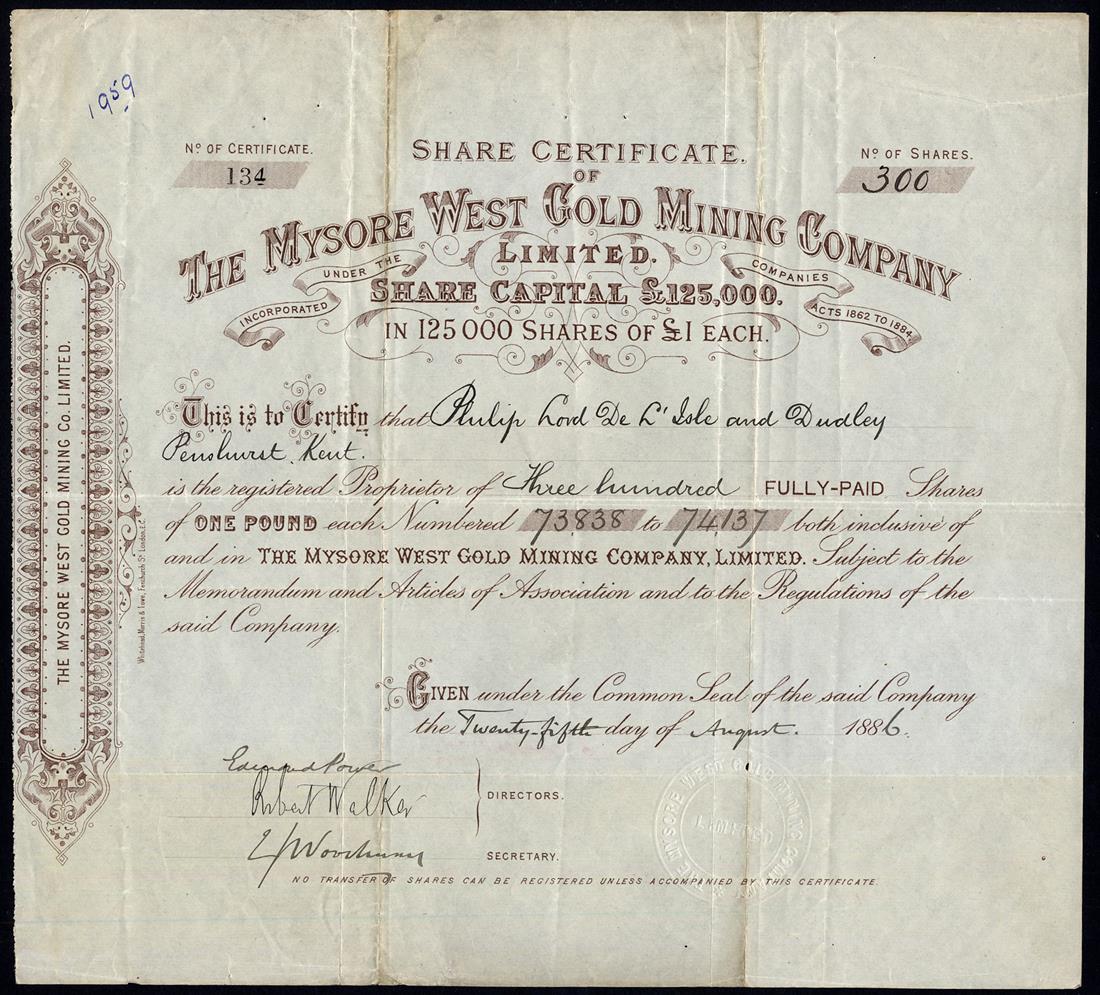 1959
Nº OF CERTIFICATE.
134
SHARE CERTIFICATE.
Nº OF SHARES.
300
OF
THE MYSORE WEST GOLD MINING COMPANY
LIMITED.
INCORPORATED UNDER THE COMPANIES ACTS 1862 TO 1884.
SHARE CAPITAL £125,000.
IN 125000 SHARES OF £1 EACH.
This is to Certify that Philip Lord De L'Isle and Dudley
Penshurst, Kent.
is the registered Proprietor of Three hundred FULLY-PAID Shares
of ONE POUND each Numbered 73,838 to 74,137 both inclusive of
and in THE MYSORE WEST GOLD MINING COMPANY, LIMITED. Subject to the
Memorandum and Articles of Association and to the Regulations of the
said Company.
GIVEN under the Common Seal of the said Company
the Twenty-fifth day of August. 1886.
Edmund Power
Robert Walker
DIRECTORS.
SECRETARY.
NO TRANSFER OF SHARES CAN BE REGISTERED UNLESS ACCOMPANIED BY THIS CERTIFICATE.
THE MYSORE WEST GOLD MINING Co. LIMITED.
Whitehead, Morris & Lowe, Fenchurch St. London, E.C.
THE MYSORE WEST GOLD MINING COMPANY
LIMITED